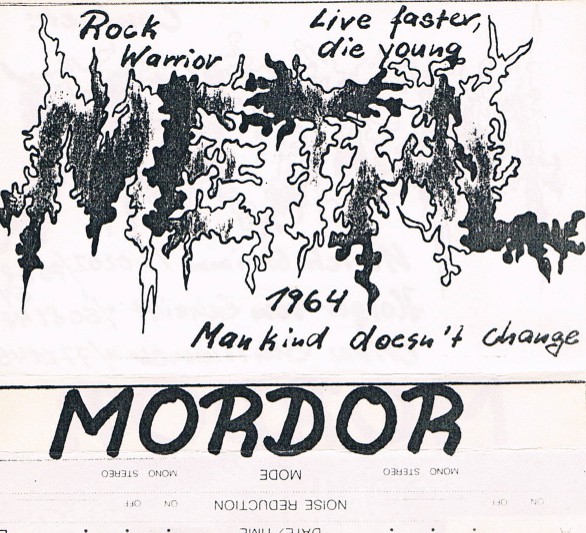 Rock
Warrior
Live faster,
die young
METAL
1964
Mankind doesn't change
MORDOR
MONO STEREO MODE MONO STEREO
ON OFF NOISE REDUCTION ON OFF
DATE/TIME